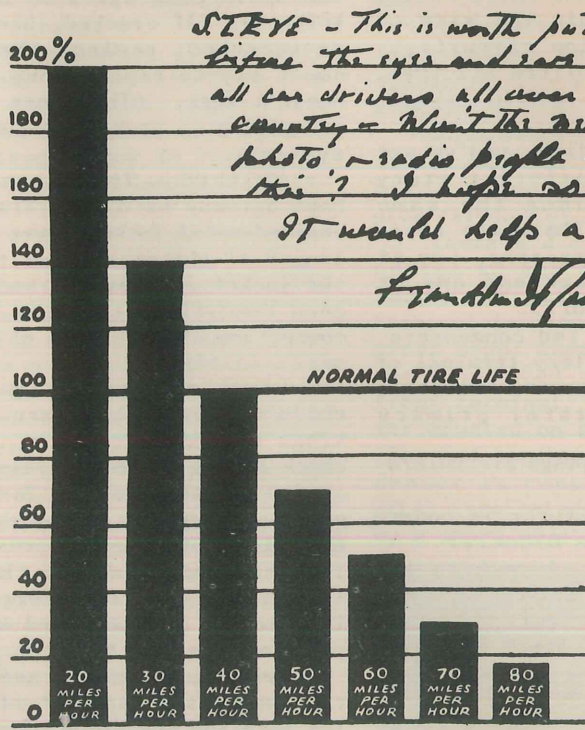 STEVE - This is worth
before the eyes and ears
all car drivers all over
country - Won't the
photo, - radio people
this? I hope so
IT would help a
200 %
180
160
140
120
100
NORMAL TIRE LIFE
80
60
40
20
0
20 MILES PER HOUR
30 MILES PER HOUR
40 MILES PER HOUR
50 MILES PER HOUR
60 MILES PER HOUR
70 MILES PER HOUR
80 MILES PER HOUR